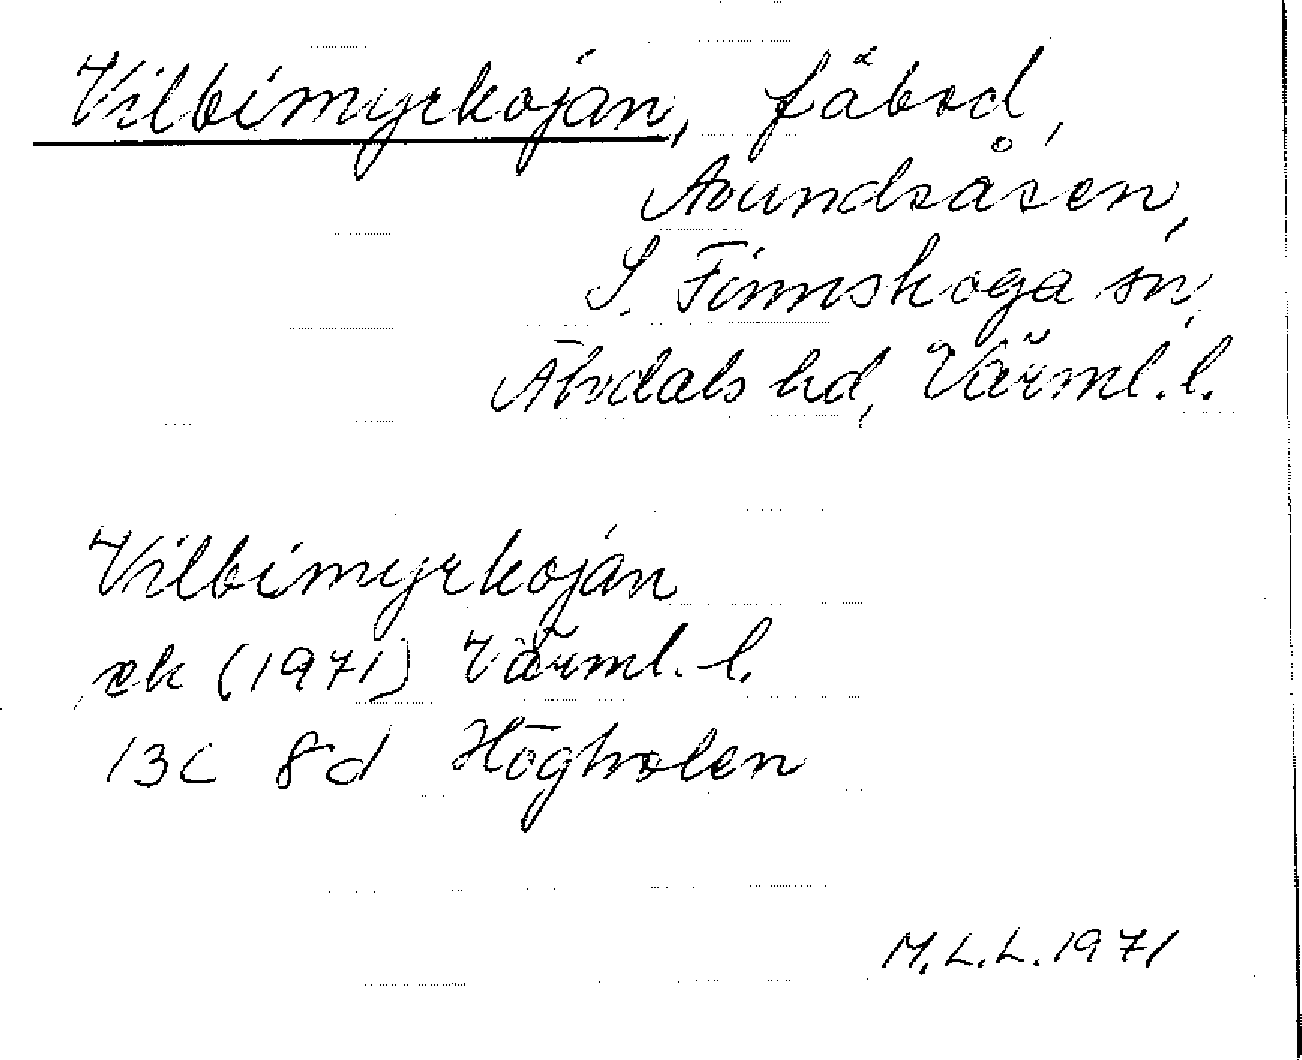 Vilbimyrkojan, fäbod,
Avundsåsen,
S. Finnskoga sn,
Älvdals hd, Värml. l.
Vilbimyrkojan
ek (1971) Värml. l.
13C 8d Högholen
M.L.L. 1971